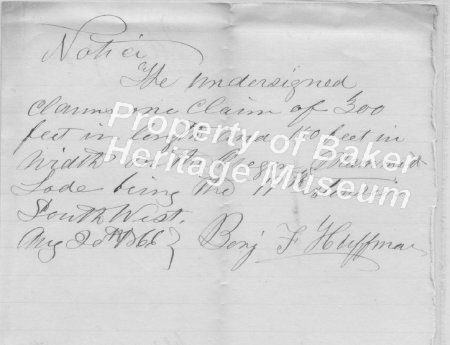 Notice
The undersigned
claims one Claim of 300
feet in length and 150 feet in
width on the
Lode being the
South West.
Aug 20th 1868 } Benj F Huffman
Property of Baker
Heritage Museum